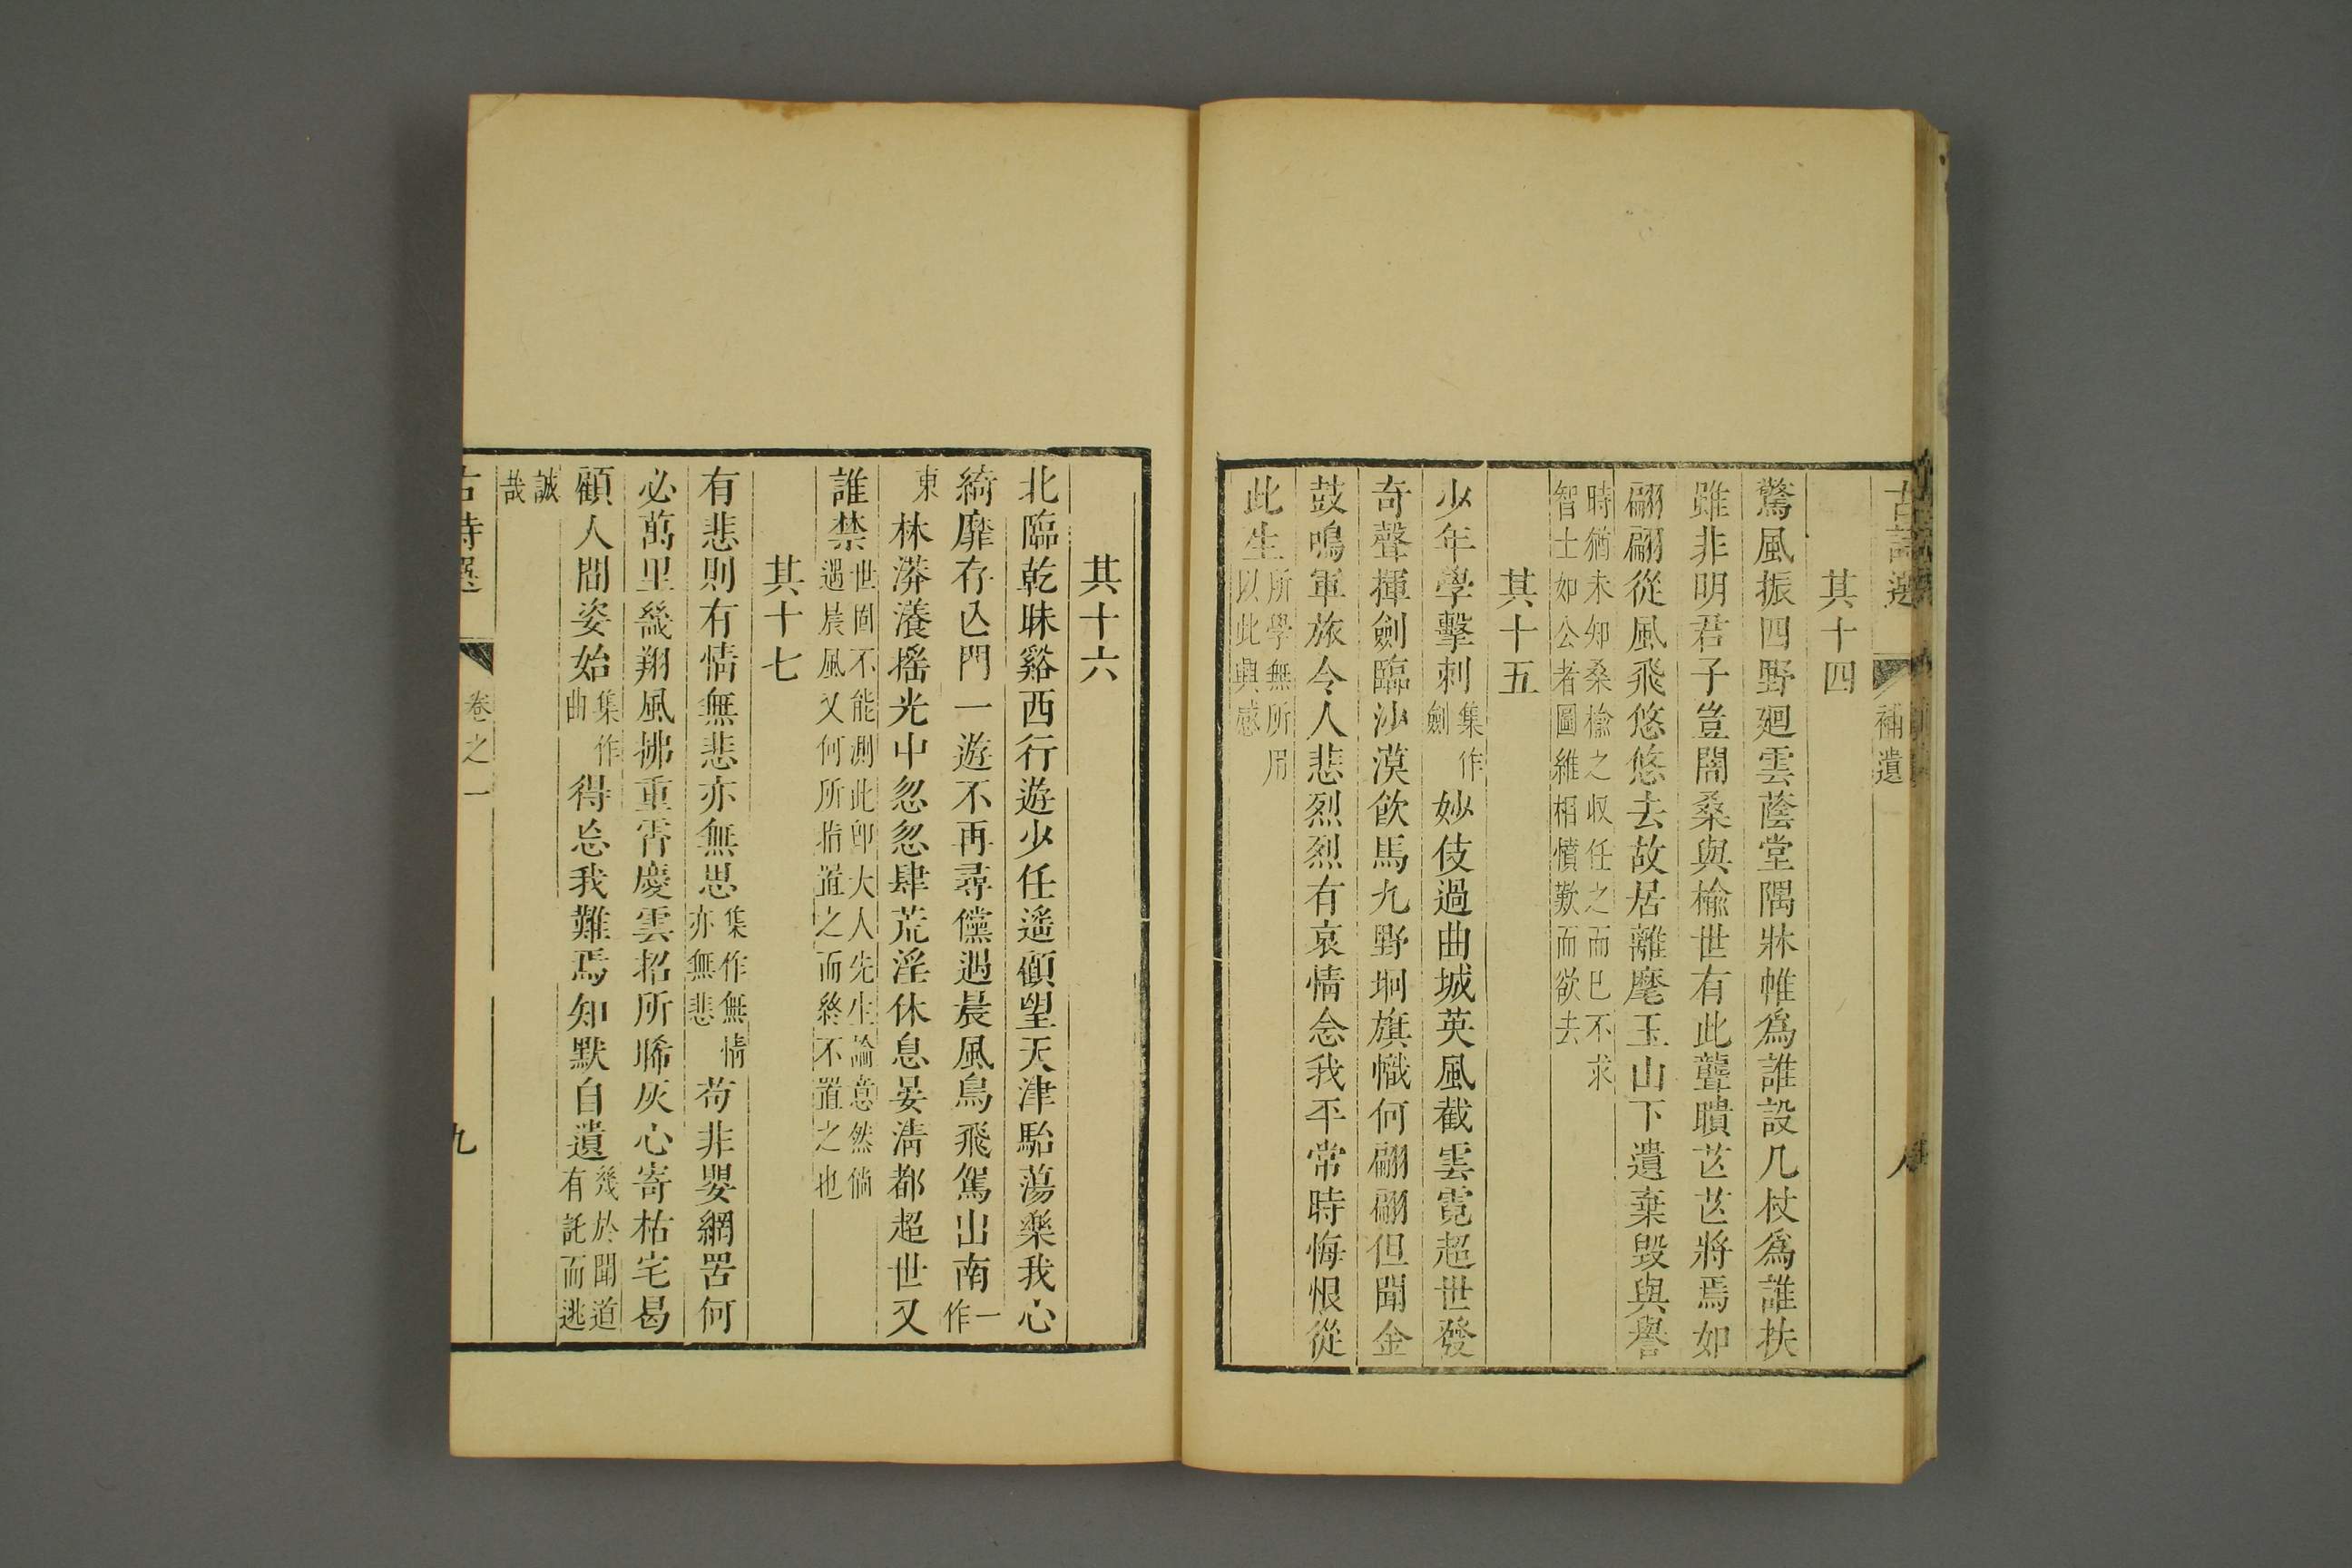 古詩選 補遺 八
其十四
驚風振四野廻雲蔭堂隅牀帷爲誰設几杖爲誰扶
雖非明君子豈闇桑與榆世有此聾聵芒芒將焉如
翩翩從風飛悠悠去故居離麾玉山下遺棄毀與譽
時猶未知桑榆之収任之而已不求
智士如公者圖維相憤歎而欲去
其十五
少年學擊刺集作劍妙伎過曲城英風截雲霓超世發
奇聲揮劍臨沙漠飲馬九野坰旗幟何翩翩但聞金
鼓鳴軍旅令人悲烈烈有哀情念我平常時悔恨從
此生所學無所用以此興感
其十六
北臨乾昧谿西行遊少任遙顧望天津駘蕩樂我心
綺靡存亾門一遊不再尋儻遇晨風鳥飛駕出南一作
東林漭瀁搖光中忽忽肆荒淫休息晏清都超世又
誰禁世固不能測此卽大人先生論意然倘遇晨風又何所指置之而終不置之也
其十七
有悲則有情無悲亦無思集作無情亦無悲苟非嬰網罟何
必萬里畿翔風拂重霄慶雲招所晞灰心寄枯宅曷
顧人間姿始集作曲得忘我難焉知默自遺幾於聞道有託而逃
誠哉
古詩選 卷之一 九